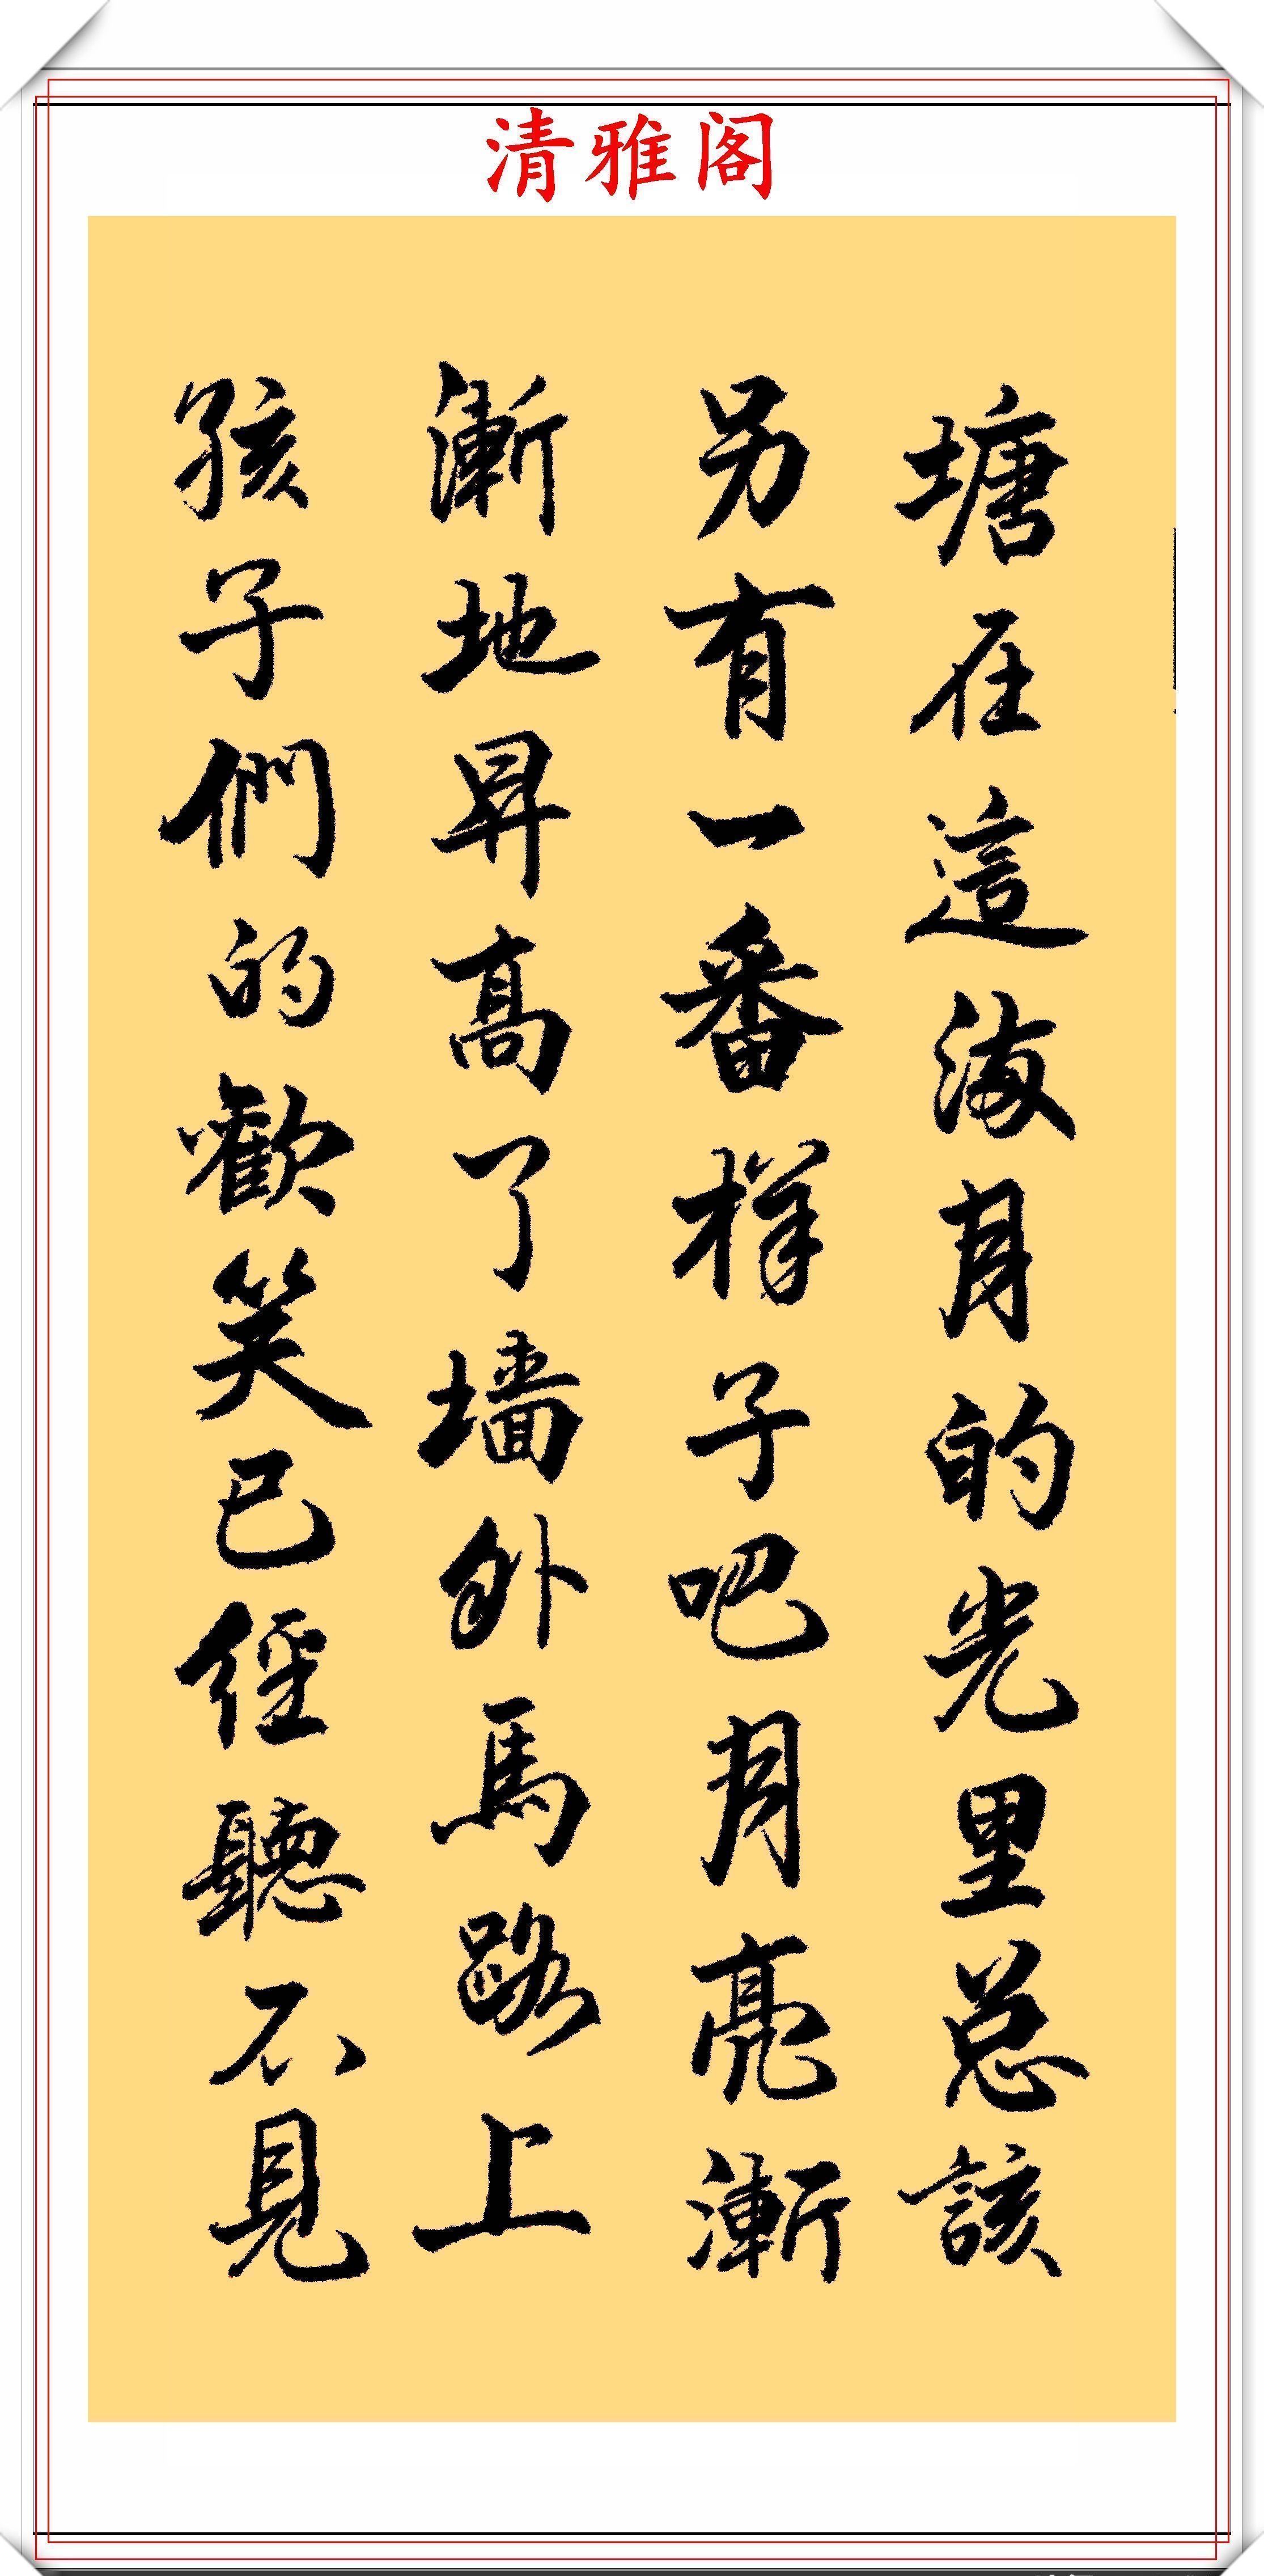 清雅阁
塘在這海月的光里总該
另有一番样子吧月亮漸
漸地昇高了墙外馬路上
孩子們的歡笑已经聽不見